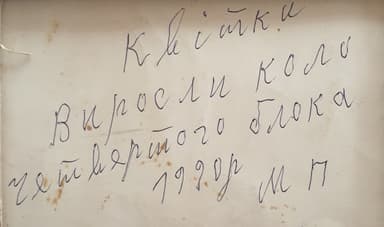 Квітки
Виросли коло
четвертого блока
1990р МП